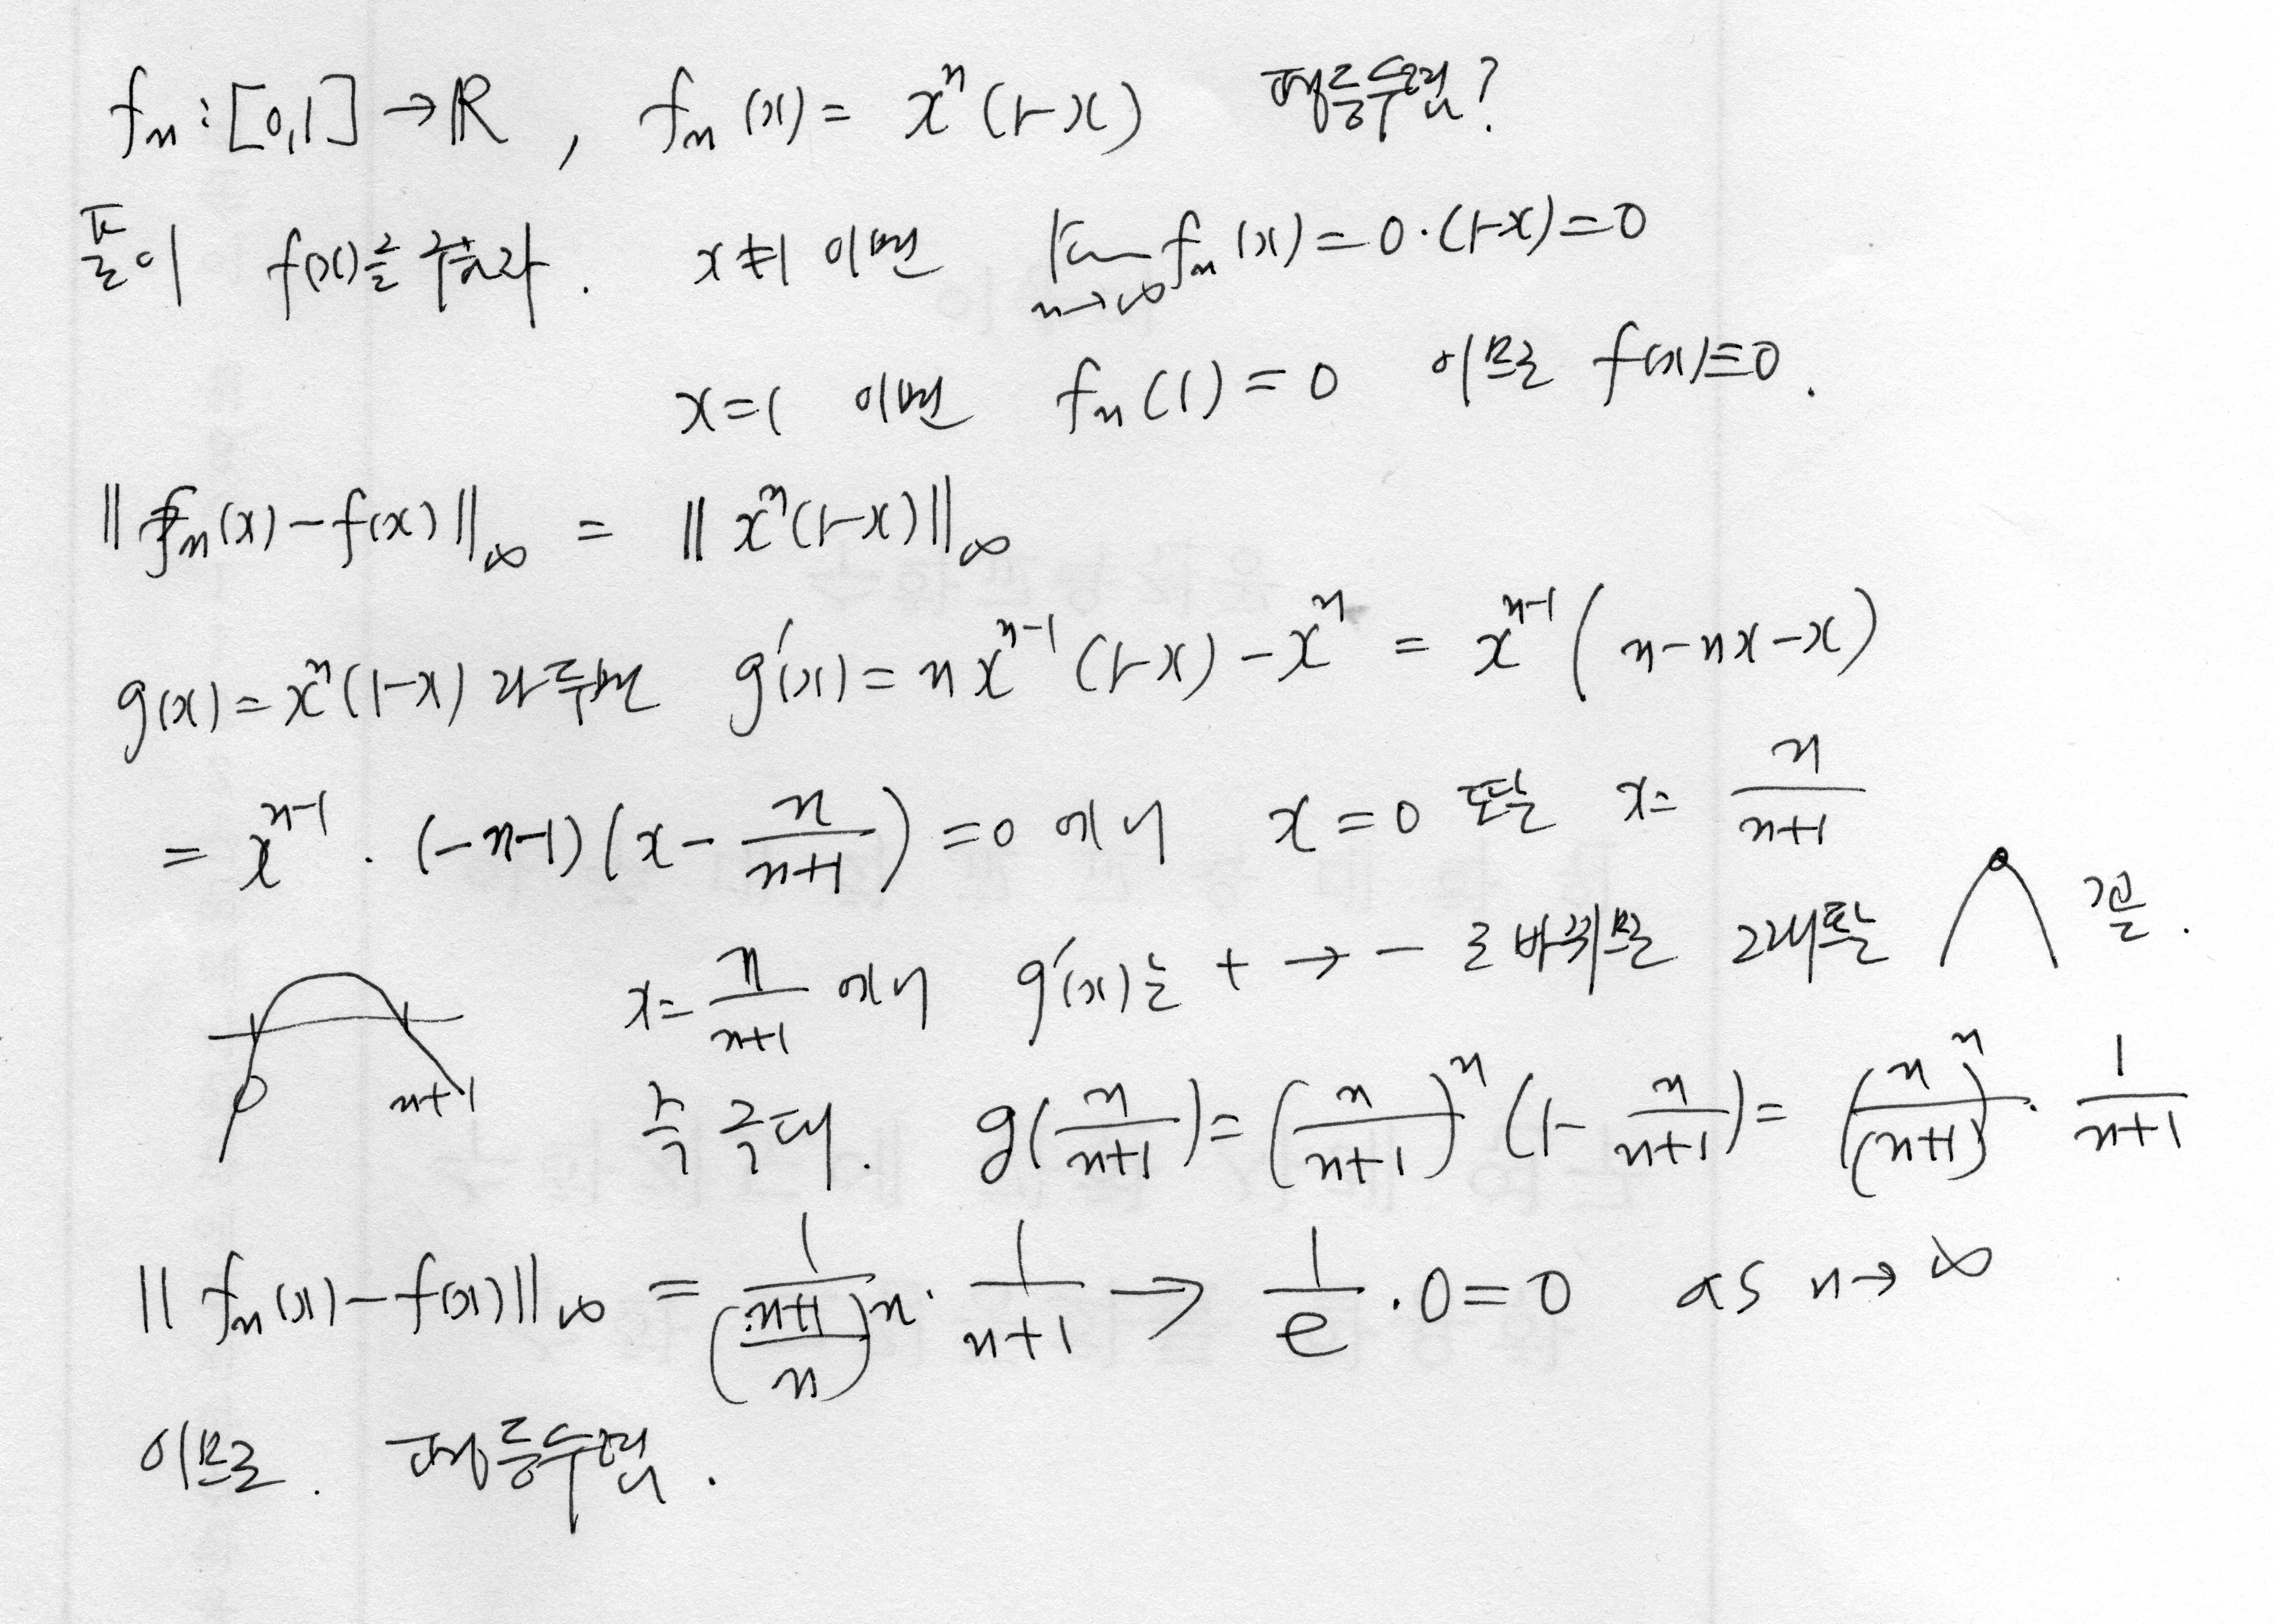 fₙ : [0,1] → ℝ , fₙ(x) = xⁿ(1-x) 평등수렴?
풀이 f(x)를 구하자. x≠1 이면 lim_{n→∞} fₙ(x) = 0·(1-x) = 0
x=1 이면 fₙ(1) = 0 이므로 f(x)≡0.
‖fₙ(x) - f(x)‖_∞ = ‖xⁿ(1-x)‖_∞
g(x) = xⁿ(1-x) 라 두면 g'(x) = nxⁿ⁻¹(1-x) - xⁿ = xⁿ⁻¹(n-nx-x)
= xⁿ⁻¹ · (-n-1)(x - n/(n+1)) = 0 에서 x=0 또는 x= n/(n+1)
x= n/(n+1) 에서 g'(x)는 + → - 로 바뀌므로 그래프는 꼴.
0 n+1
즉 극대. g(n/(n+1)) = (n/(n+1))ⁿ (1 - n/(n+1)) = (n/(n+1))ⁿ · 1/(n+1)
‖fₙ(x) - f(x)‖_∞ = 1/((n+1)/n)ⁿ · 1/(n+1) → 1/e · 0 = 0 as n→∞
이므로. 평등수렴.